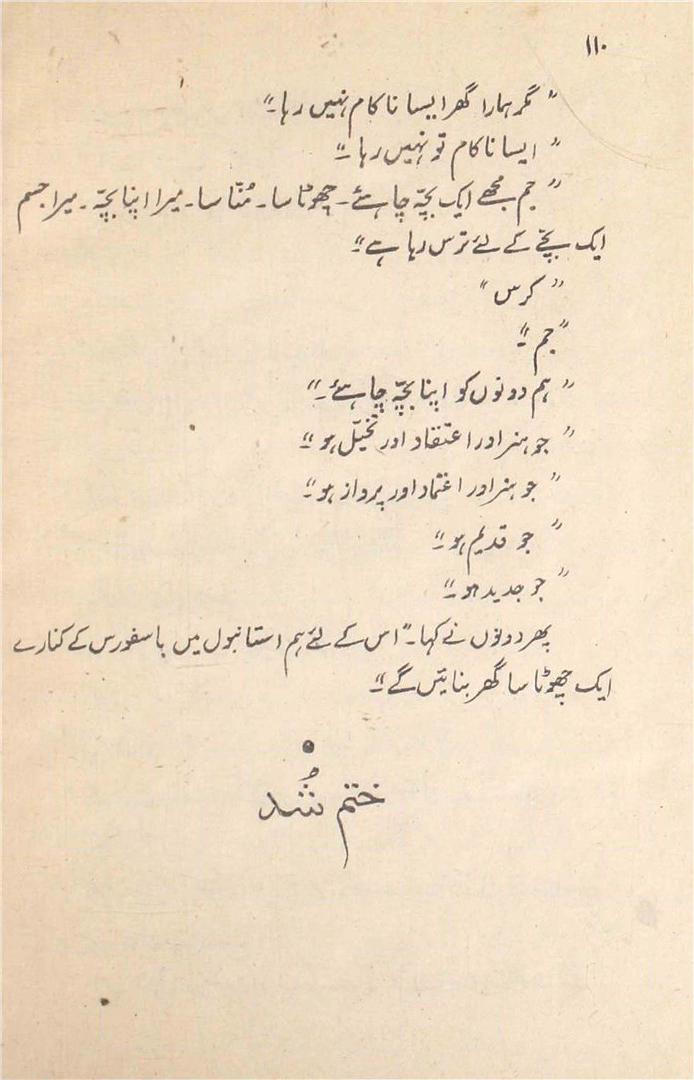 ۱۱۰
"مگر ہمارا گھر ایسا ناکام نہیں رہا۔"
"ایسا ناکام تو نہیں رہا۔"
"جم مجھے ایک بچّہ چاہئے۔ چھوٹا سا۔ مُنّا سا۔ میرا اپنا بچّہ۔ میرا جسم
ایک بچّے کے لئے ترس رہا ہے۔"
"کرس"
"جم۔"
"ہم دونوں کو اپنا بچّہ چاہئے۔"
"جو ہنر اور اعتقاد اور تخیّل ہو۔"
"جو ہنر اور اعتماد اور پرواز ہو۔"
"جو قدیم ہو۔"
"جو جدید ہو۔"
پھر دونوں نے کہا۔ "اس کے لئے ہم استانبول میں باسفورس کے کنارے
ایک چھوٹا سا گھر بنائیں گے۔"
ختم شُد